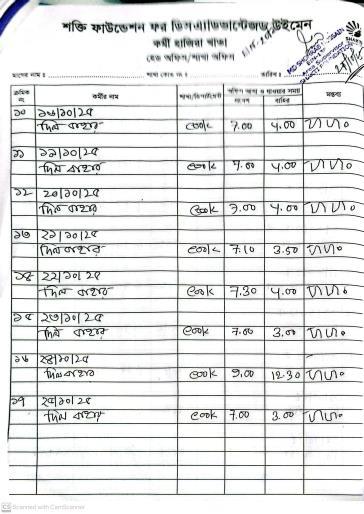 শক্তি ফাউন্ডেশন ফর ডিসএ্যাডভান্টেজড উইমেন
কর্মী হাজিরা খাতা
হেড অফিস/শাখা অফিস
মাসের নাম : শাখা কোড নং : তারিখ :
ক্রমিক নং কর্মীর নাম শাখা/ডিপার্টমেন্ট অফিস আসা ও যাওয়ার সময় মন্তব্য
প্রবেশ বাহির
১০ ১৮/১০/২৫
দিল বাহার cook 7.00 4.00
১১ ১৯/১০/২৫
দিল বাহার cook 7.00 4.00
১২ ২০/১০/২৫
দিল বাহার cook 7.00 4.00
১৩ ২১/১০/২৫
দিল বাহার cook 7.10 3.50
১৪ ২২/১০/২৫
দিল বাহার cook 7.30 4.00
১৫ ২৩/১০/২৫
দিল বাহার cook 7.00 3.00
১৬ ২৪/১০/২৫
দিল বাহার cook 9.00 12.30
১৭ ২৫/১০/২৫
দিল বাহার cook 7.00 3.00
CS Scanned with CamScanner